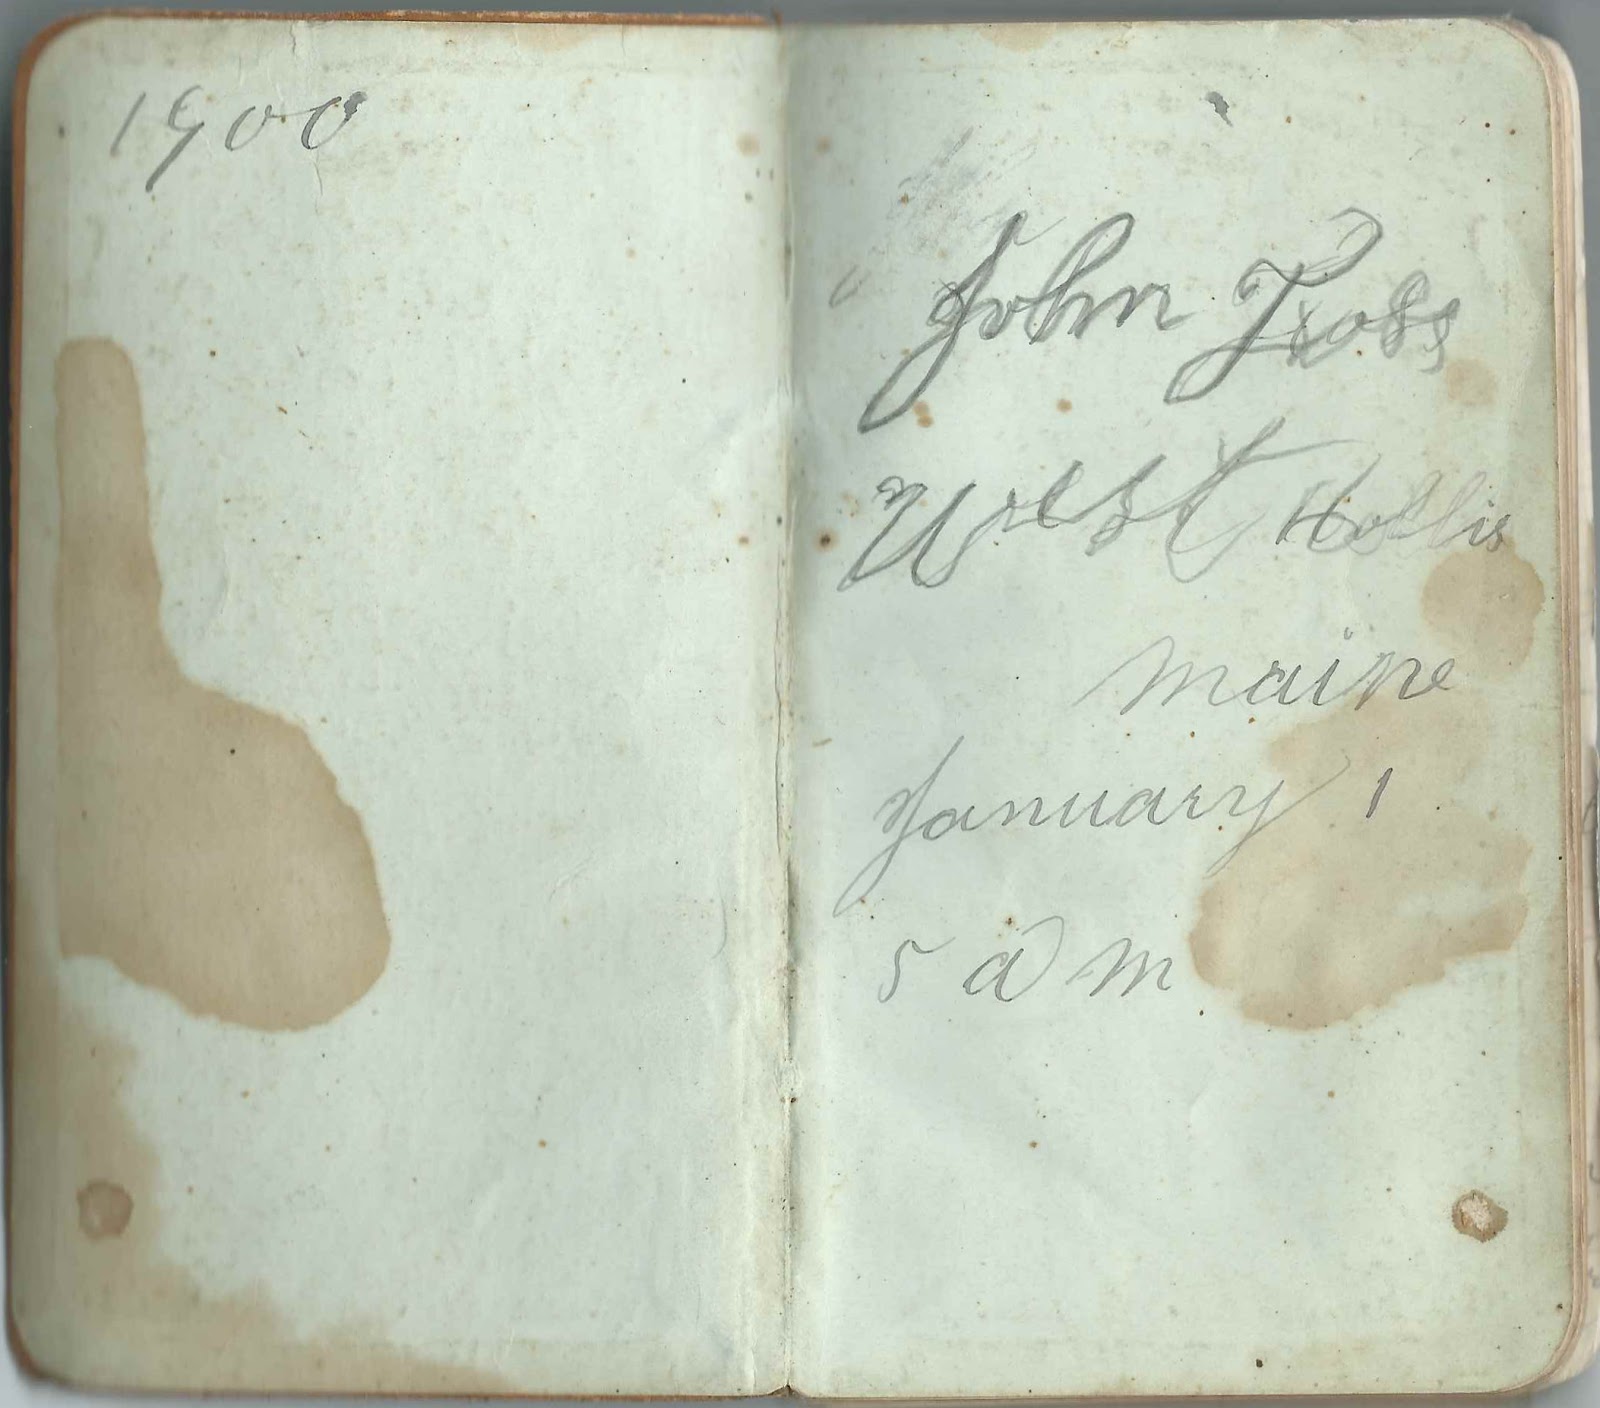 1900
John
West Hollis
maine
January 1
5 a m